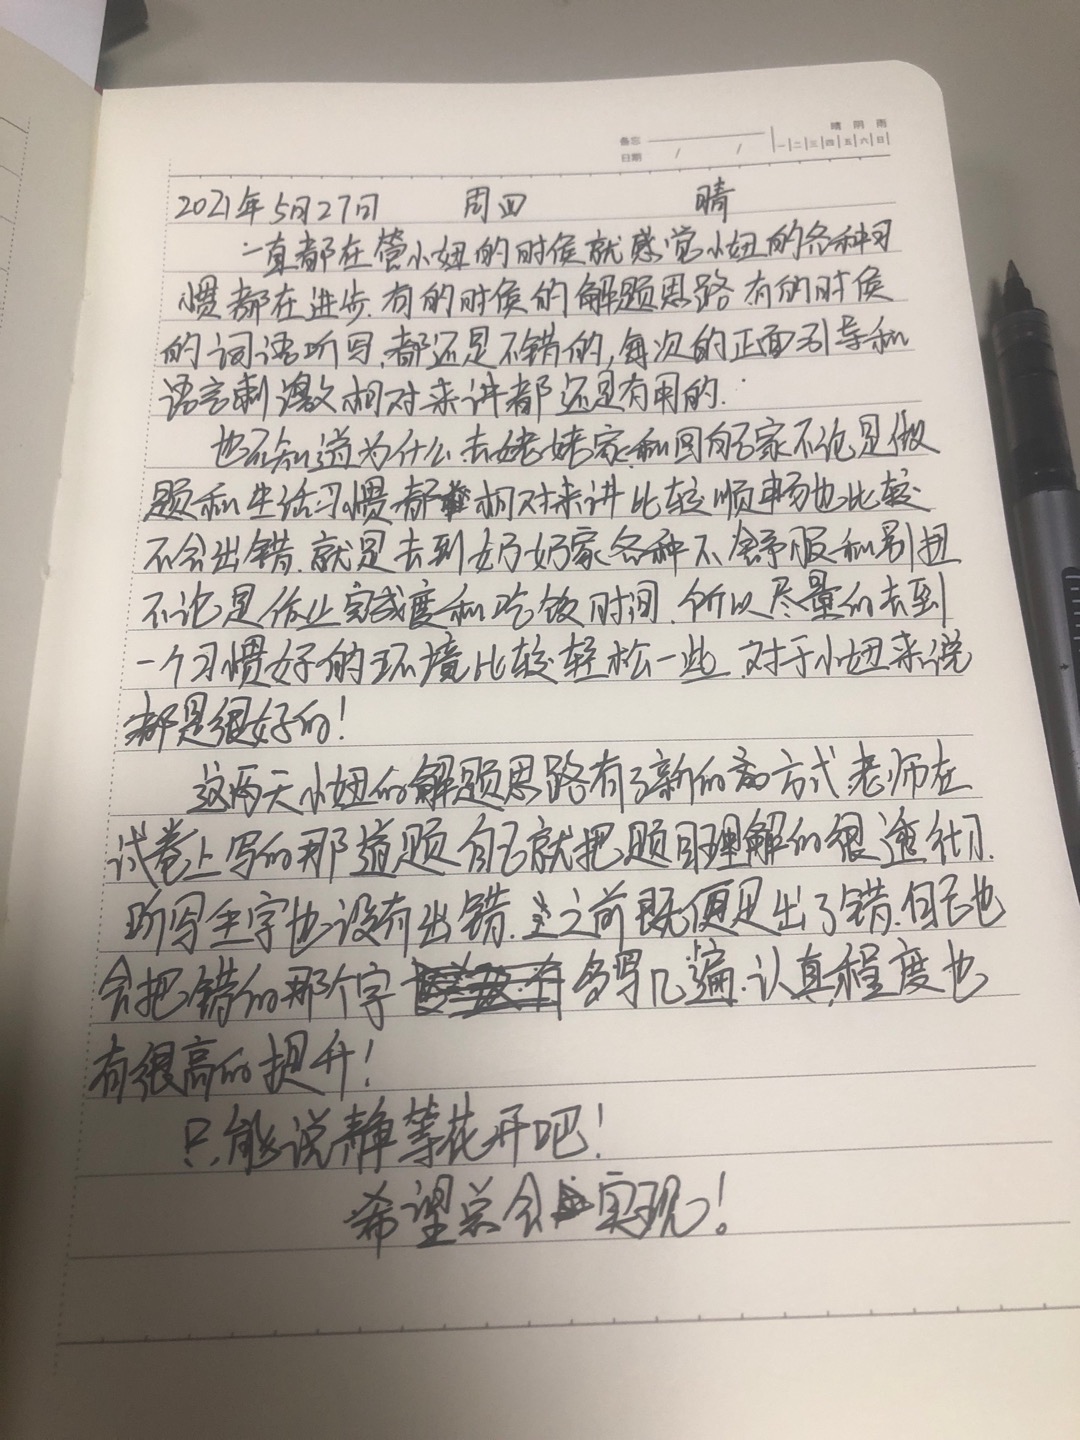 晴 阴 雨
备忘
一 二 三 四 五 六 日
日期 / /
2021年5月27日 周四 晴
一直都在管小妞的时候就感觉小妞的各种习
惯都在进步.有的时候的解题思路有的时候
的词语听写,都还是不错的,每次的正面引导和
语言刺激相对来讲都还是有用的.
也不知道为什么去姥姥家和回自己家不论是做
题和生活习惯都相对来讲比较顺畅也比较
不会出错.就是去到奶奶家各种不舒服和别扭
不论是作业完成度和吃饭时间.所以尽量的去到
一个习惯好的环境比较轻松一些.对于小妞来说
都是很好的!
这两天小妞的解题思路有了新的方式.老师在
试卷上写的那道题自己就把题目理解的很透彻.
听写生字也没有出错.之前既便是出了错.自己也
会把错的那个字多写几遍.认真程度也
有很高的提升!
只能说静等花开吧!
希望总会实现!